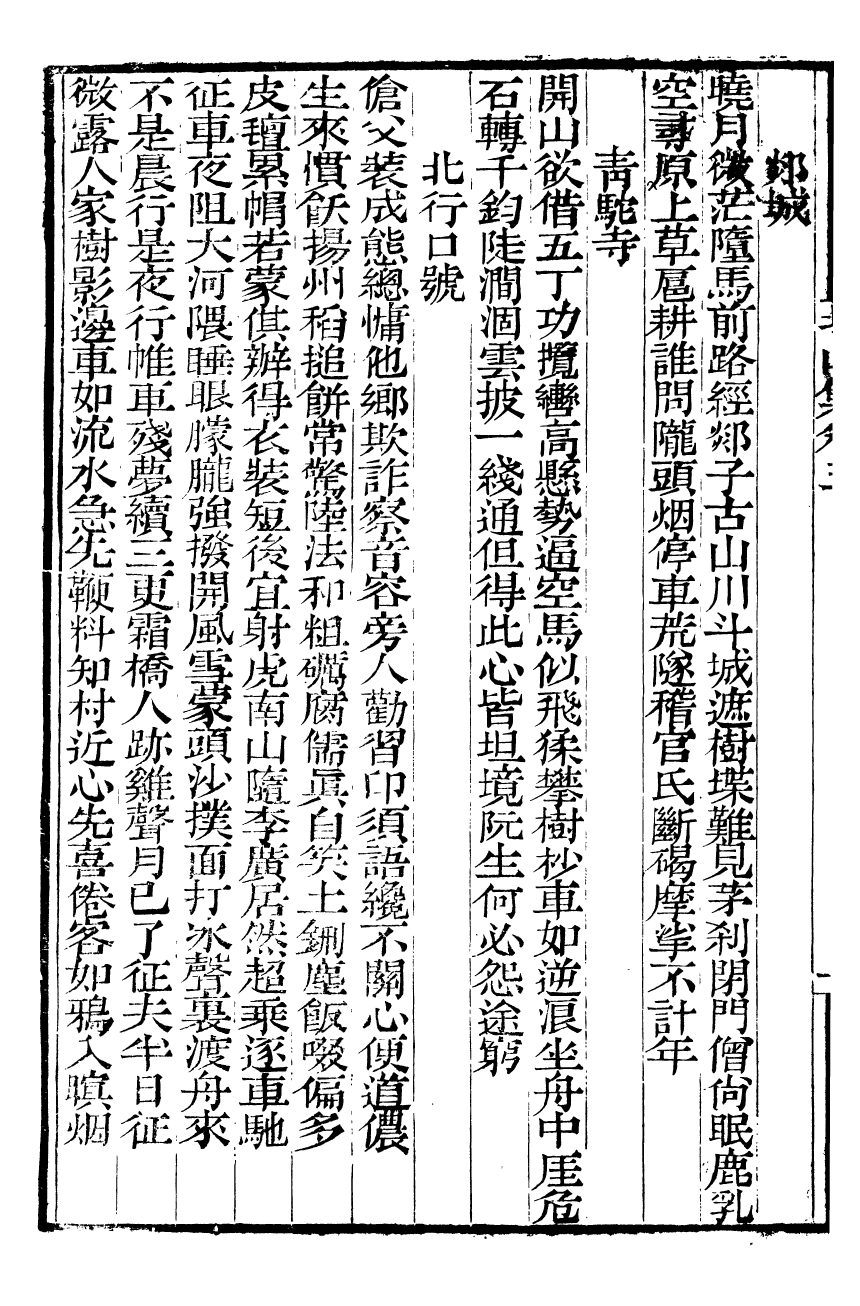 郯城
曉月微茫墮馬前路經郯子古山川斗城遮樹堞難見茅刹閉門僧尙眠鹿乳
空尋原上草扈耕誰問隴頭烟停車荒隧稽官氏斷碣摩挲不計年
靑駝寺
開山欲借五丁功攬轡高懸勢逼空馬似飛猱攀樹杪車如逆浪坐舟中厓危
石轉千鈞陡澗涸雲披一綫通但得此心皆坦境阮生何必怨途窮
北行口號
傖父裝成態總慵他鄉欺詐察音容旁人勸習卬須語纔不關心便道儂
生來慣飫揚州稻搥餠常驚陸法和粗礪腐儒眞自笑土鉶塵飯啜偏多
皮䪜累帽若蒙倛辦得衣裝短後宜射虎南山隨李廣居然超乘逐車馳
征車夜阻大河隈睡眼朦朧強撥開風雪蒙頭沙撲面打冰聲裏渡舟來
不是晨行是夜行帷車殘夢續三更霜橋人跡雞聲月已了征夫半日征
微露人家樹影邊車如流水急先鞭料知村近心先喜倦客如鴉入暝烟